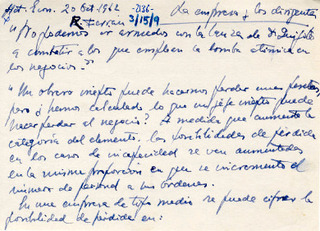 20 Oct 1962 -236- La empresa y los dirigentes
R 3/15/9
"No podemos ir armados con la lanza de D. Quijote
a combatir a los que emplean la bomba atómica en
los negocios."
"Un obrero inepto puede hacernos perder unas pesetas,
pero ¿hemos calculado lo que un jefe inepto puede
hacer perder al negocio? A medida que aumenta la
categoría del elemento, las posibilidades de pérdida
en los casos de incapacidad se ven aumentadas
en la misma proporción en que se incrementa el
número de personal a sus órdenes.
En una empresa de tipo medio se puede cifrar la
posibilidad de pérdida en: